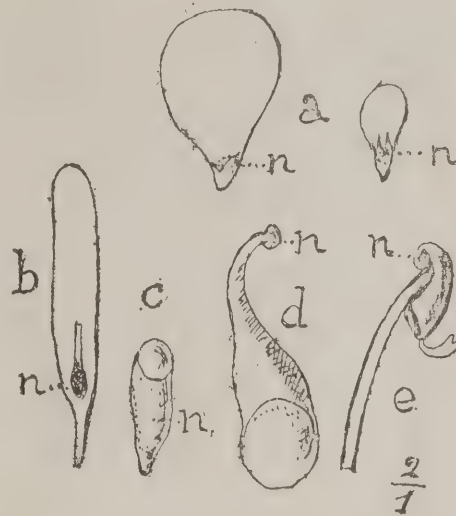 a
n
n
b
n
c
n
d
n
n
e
2/1